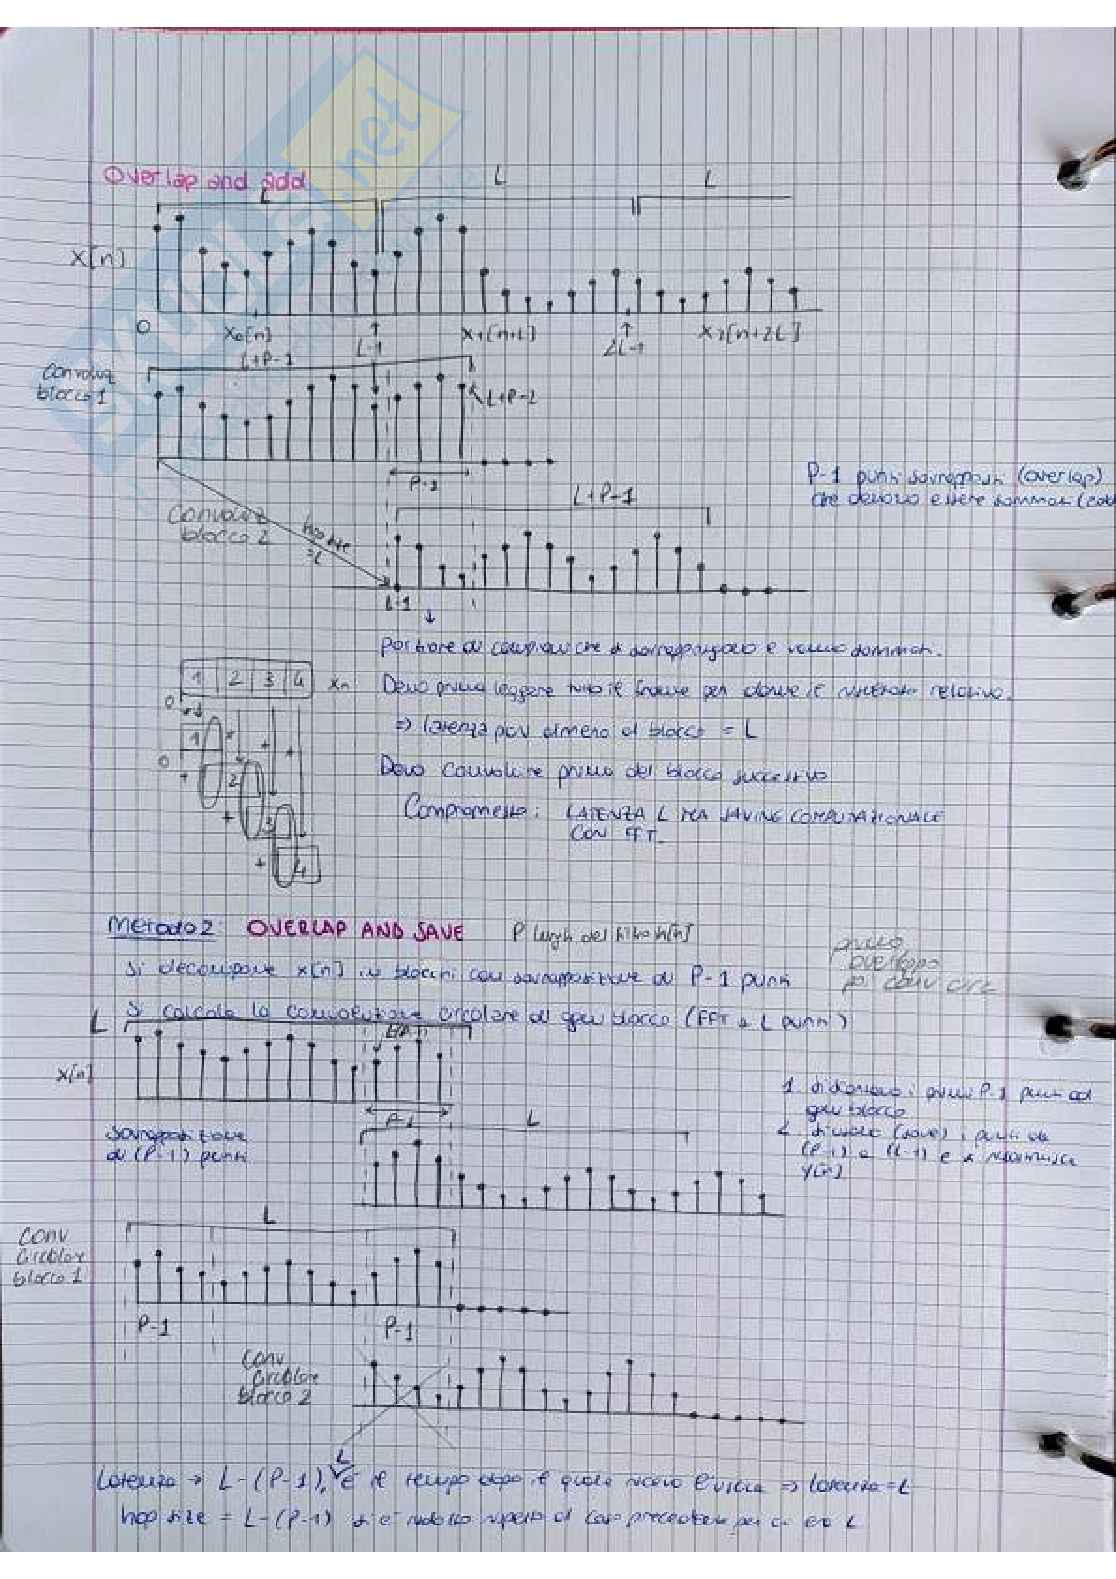 Overlap and add
L
L
L
X[n]
0
X₀[n]
L-1
X₁[n+L]
2L-1
X₂[n+2L]
L+P-1
Convoluz
blocco 1
L+P-2
P-1
P-1 punti sovrapposti (overlap)
che devono essere sommati
L+P-1
Convoluz
blocco 2
hop size
=L
L-1
Porzione di campioni che si sovrappongono e vanno sommati.
1 2 3 4 Xn
Devo prima leggere tutto il frame per darne il risultato relativo.
0
⇒ latenza pari almeno al blocco = L
1
0
Devo convolvere prima del blocco successivo
2
Compromesso: LATENZA L MA SAVING COMPUTAZIONALE
CON FFT
3
4
Metodo 2: OVERLAP AND SAVE P lungh del filtro h[n]
Si decompone x[n] in blocchi con sovrapposizione di P-1 punti
overlappo
conv circ
Si calcola la convoluzione circolare di ogni blocco (FFT a L punti)
L
X[n]
P-1
L
Sovrapposizione
di (P-1) punti
1 si scartano i primi P-1 punti ad
ogni blocco
2 si salva (save) i punti da
(P-1) a (L-1) e si ricostruisce
y[n]
L
Conv
circolare
blocco 1
P-1
P-1
Conv
circolare
blocco 2
L
Latenza → L-(P-1), è il tempo dopo il quale ricevo ⇒ latenza=L
hop size = L-(P-1) si è ridotto rispetto al caso precedente per cui era L